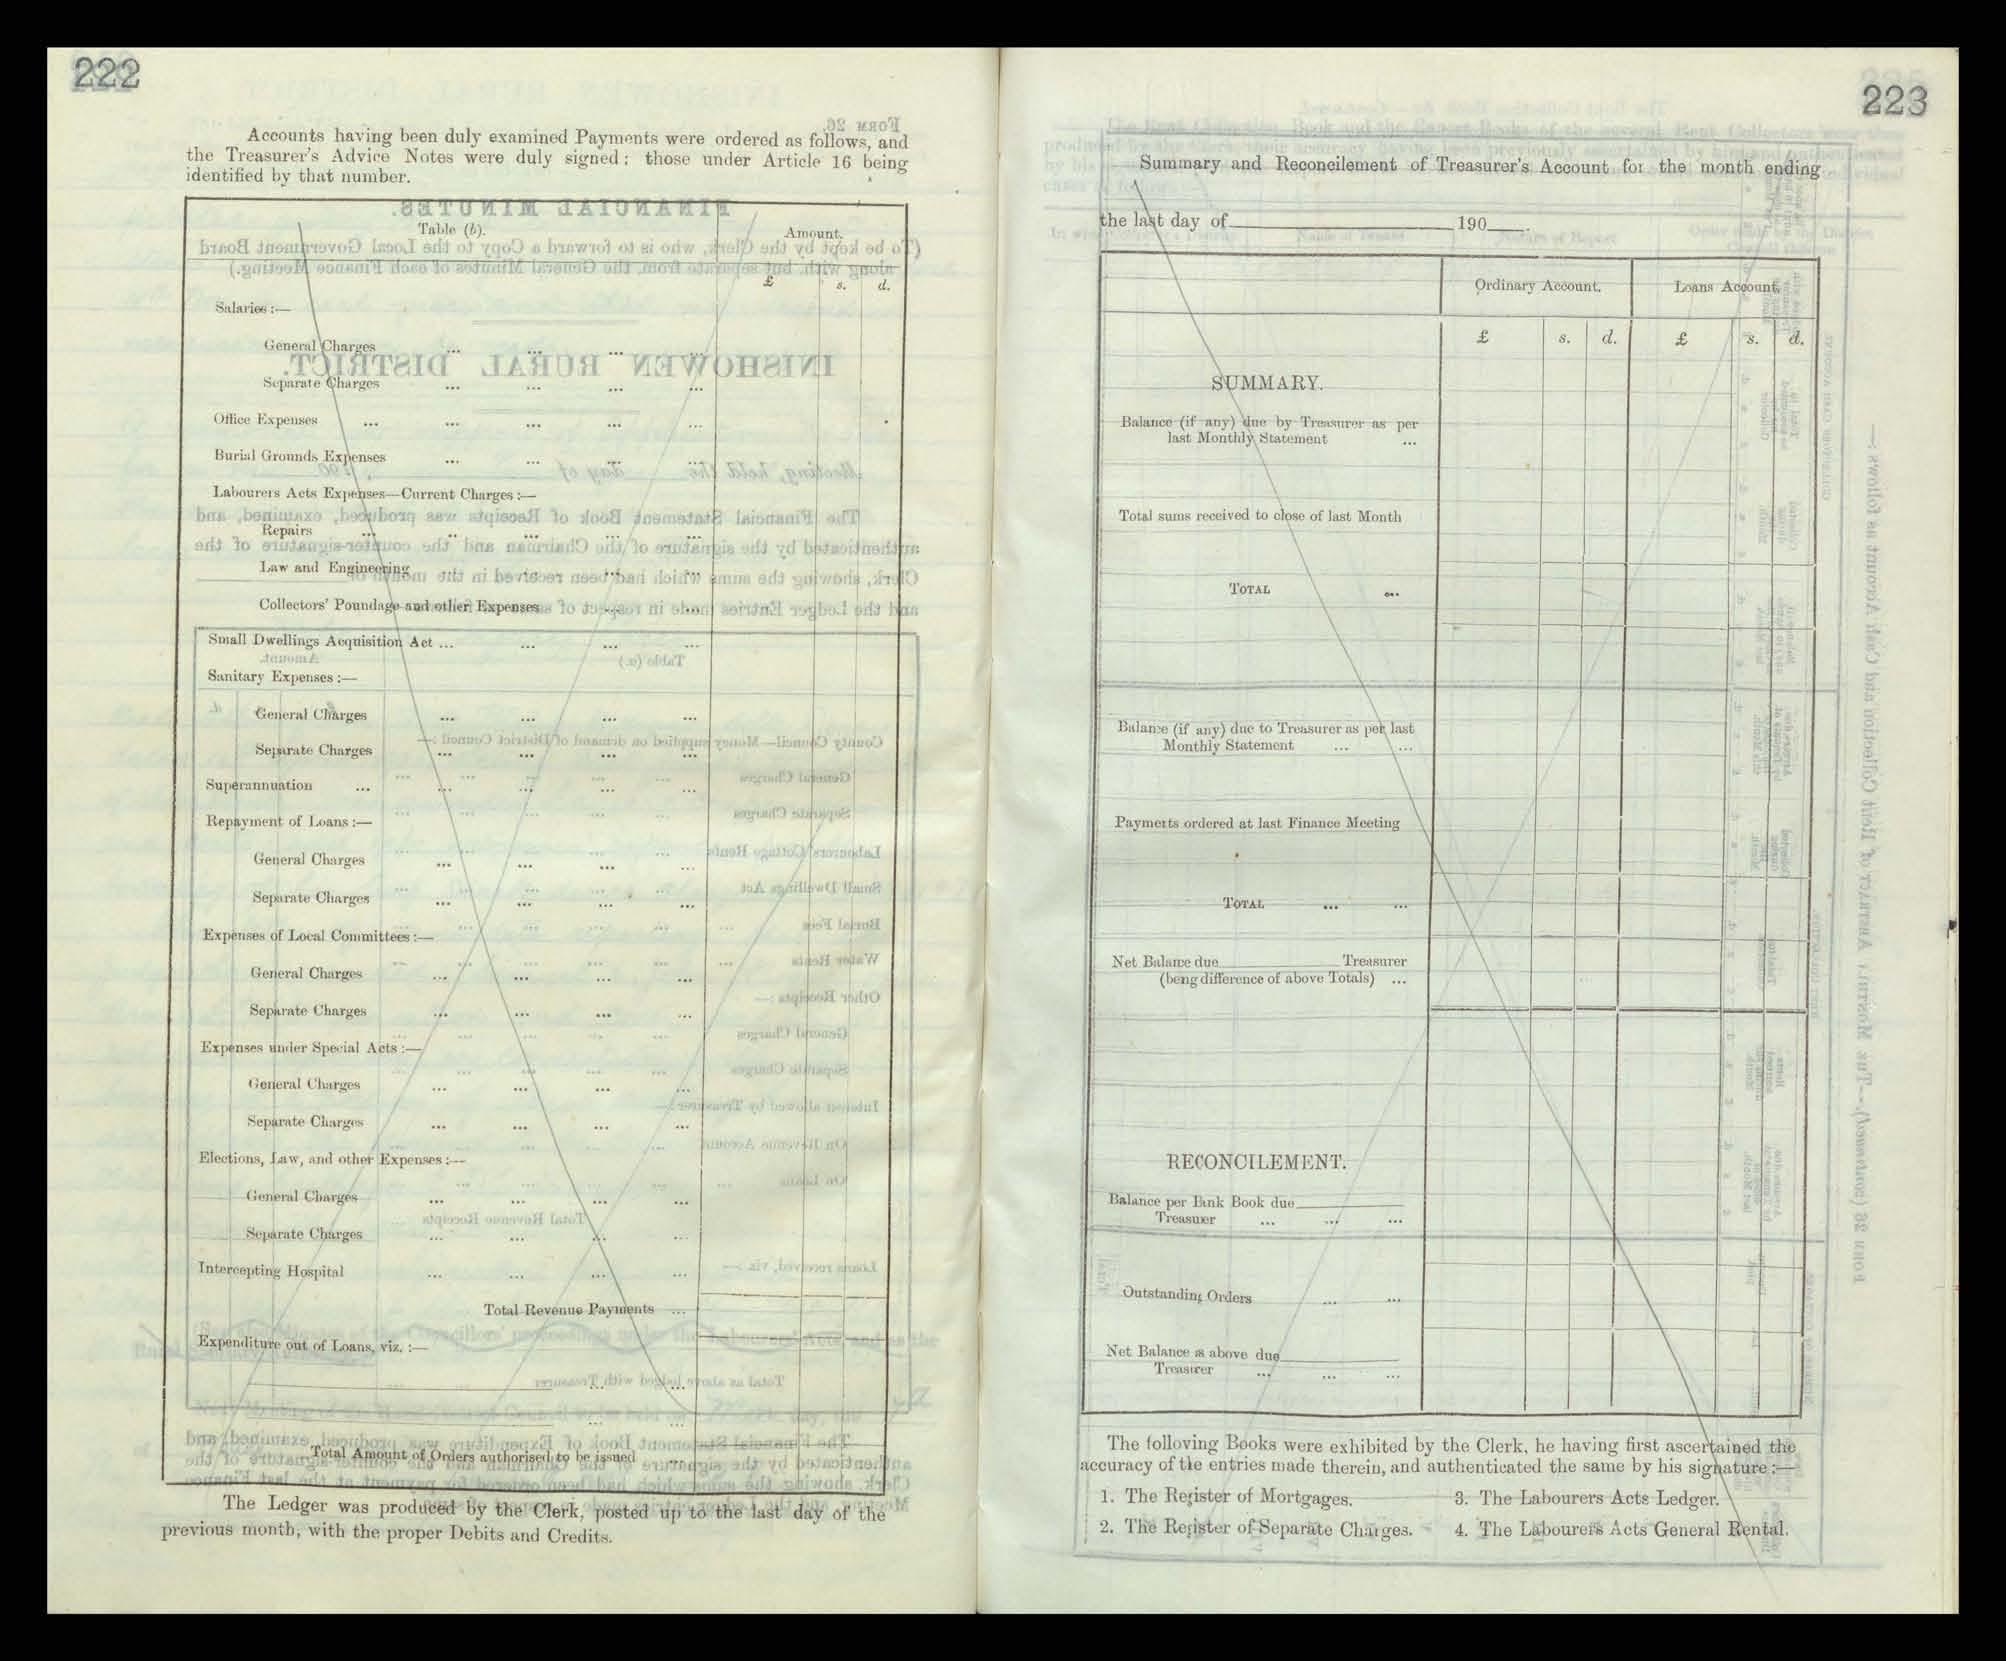 222
Accounts having been duly examined Payments were ordered as follows, and
the Treasurer's Advice Notes were duly signed: those under Article 16 being
identified by that number.
Table (b). Amount.
£ s. d.
Salaries :—
General Charges ... ... ... ...
Separate Charges ... ... ... ...
Office Expenses ... ... ... ... ...
Burial Grounds Expenses ... ... ... ...
Labourers Acts Expenses—Current Charges :—
Repairs ... ... ... ... ...
Law and Engineering ... ... ...
Collectors' Poundage and other Expenses ... ...
Small Dwellings Acquisition Act ... ... ... ...
Sanitary Expenses :—
General Charges ... ... ... ...
Separate Charges ... ... ... ...
Superannuation ... ... ... ... ...
Repayment of Loans :—
General Charges ... ... ... ...
Separate Charges ... ... ... ...
Expenses of Local Committees :—
General Charges ... ... ... ...
Separate Charges ... ... ... ...
Expenses under Special Acts :—
General Charges ... ... ... ...
Separate Charges ... ... ... ...
Elections, Law, and other Expenses :—
General Charges ... ... ... ...
Separate Charges ... ... ... ...
Intercepting Hospital ... ... ... ...
Total Revenue Payments ...
Expenditure out of Loans, viz. :—
Total Amount of Orders authorised to be issued ...
The Ledger was produced by the Clerk, posted up to the last day of the
previous month, with the proper Debits and Credits.
223
Summary and Reconcilement of Treasurer's Account for the month ending
the last day of 190 .
Ordinary Account. Loans Account.
£ s. d. £ s. d.
SUMMARY.
Balance (if any) due by Treasurer as per
last Monthly Statement ...
Total sums received to close of last Month
TOTAL ...
Balance (if any) due to Treasurer as per last
Monthly Statement ... ...
Payments ordered at last Finance Meeting
TOTAL ... ...
Net Balance due Treasurer
(being difference of above Totals) ...
RECONCILEMENT.
Balance per Bank Book due
Treasurer ... ... ...
Outstanding Orders ... ...
Net Balance as above due
Treasurer ... ... ...
The following Books were exhibited by the Clerk, he having first ascertained the
accuracy of the entries made therein, and authenticated the same by his signature :—
1. The Register of Mortgages. 3. The Labourers Acts Ledger.
2. The Register of Separate Charges. 4. The Labourers Acts General Rental.